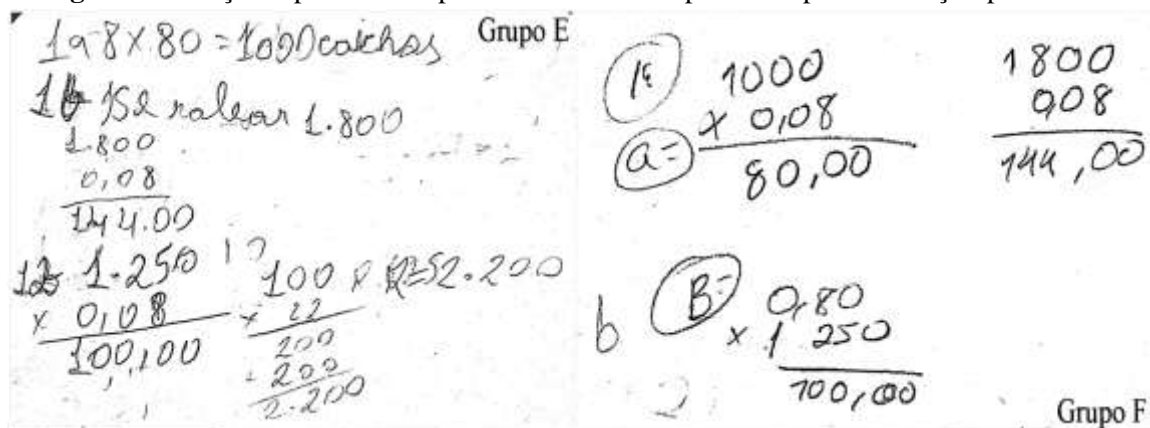 1a 8 x 80 = 1000 caichas
Grupo E
1b 1Se ralear 1.800
1.800
0,08
144.00
1.250
x 0,08
100,00
100 x R=2.200
x 22
200
200
2.200
1ª
1000
x 0,08
a=
80,00
1800
0,08
144,00
b
B=
0,80
x 1 250
100,00
Grupo F